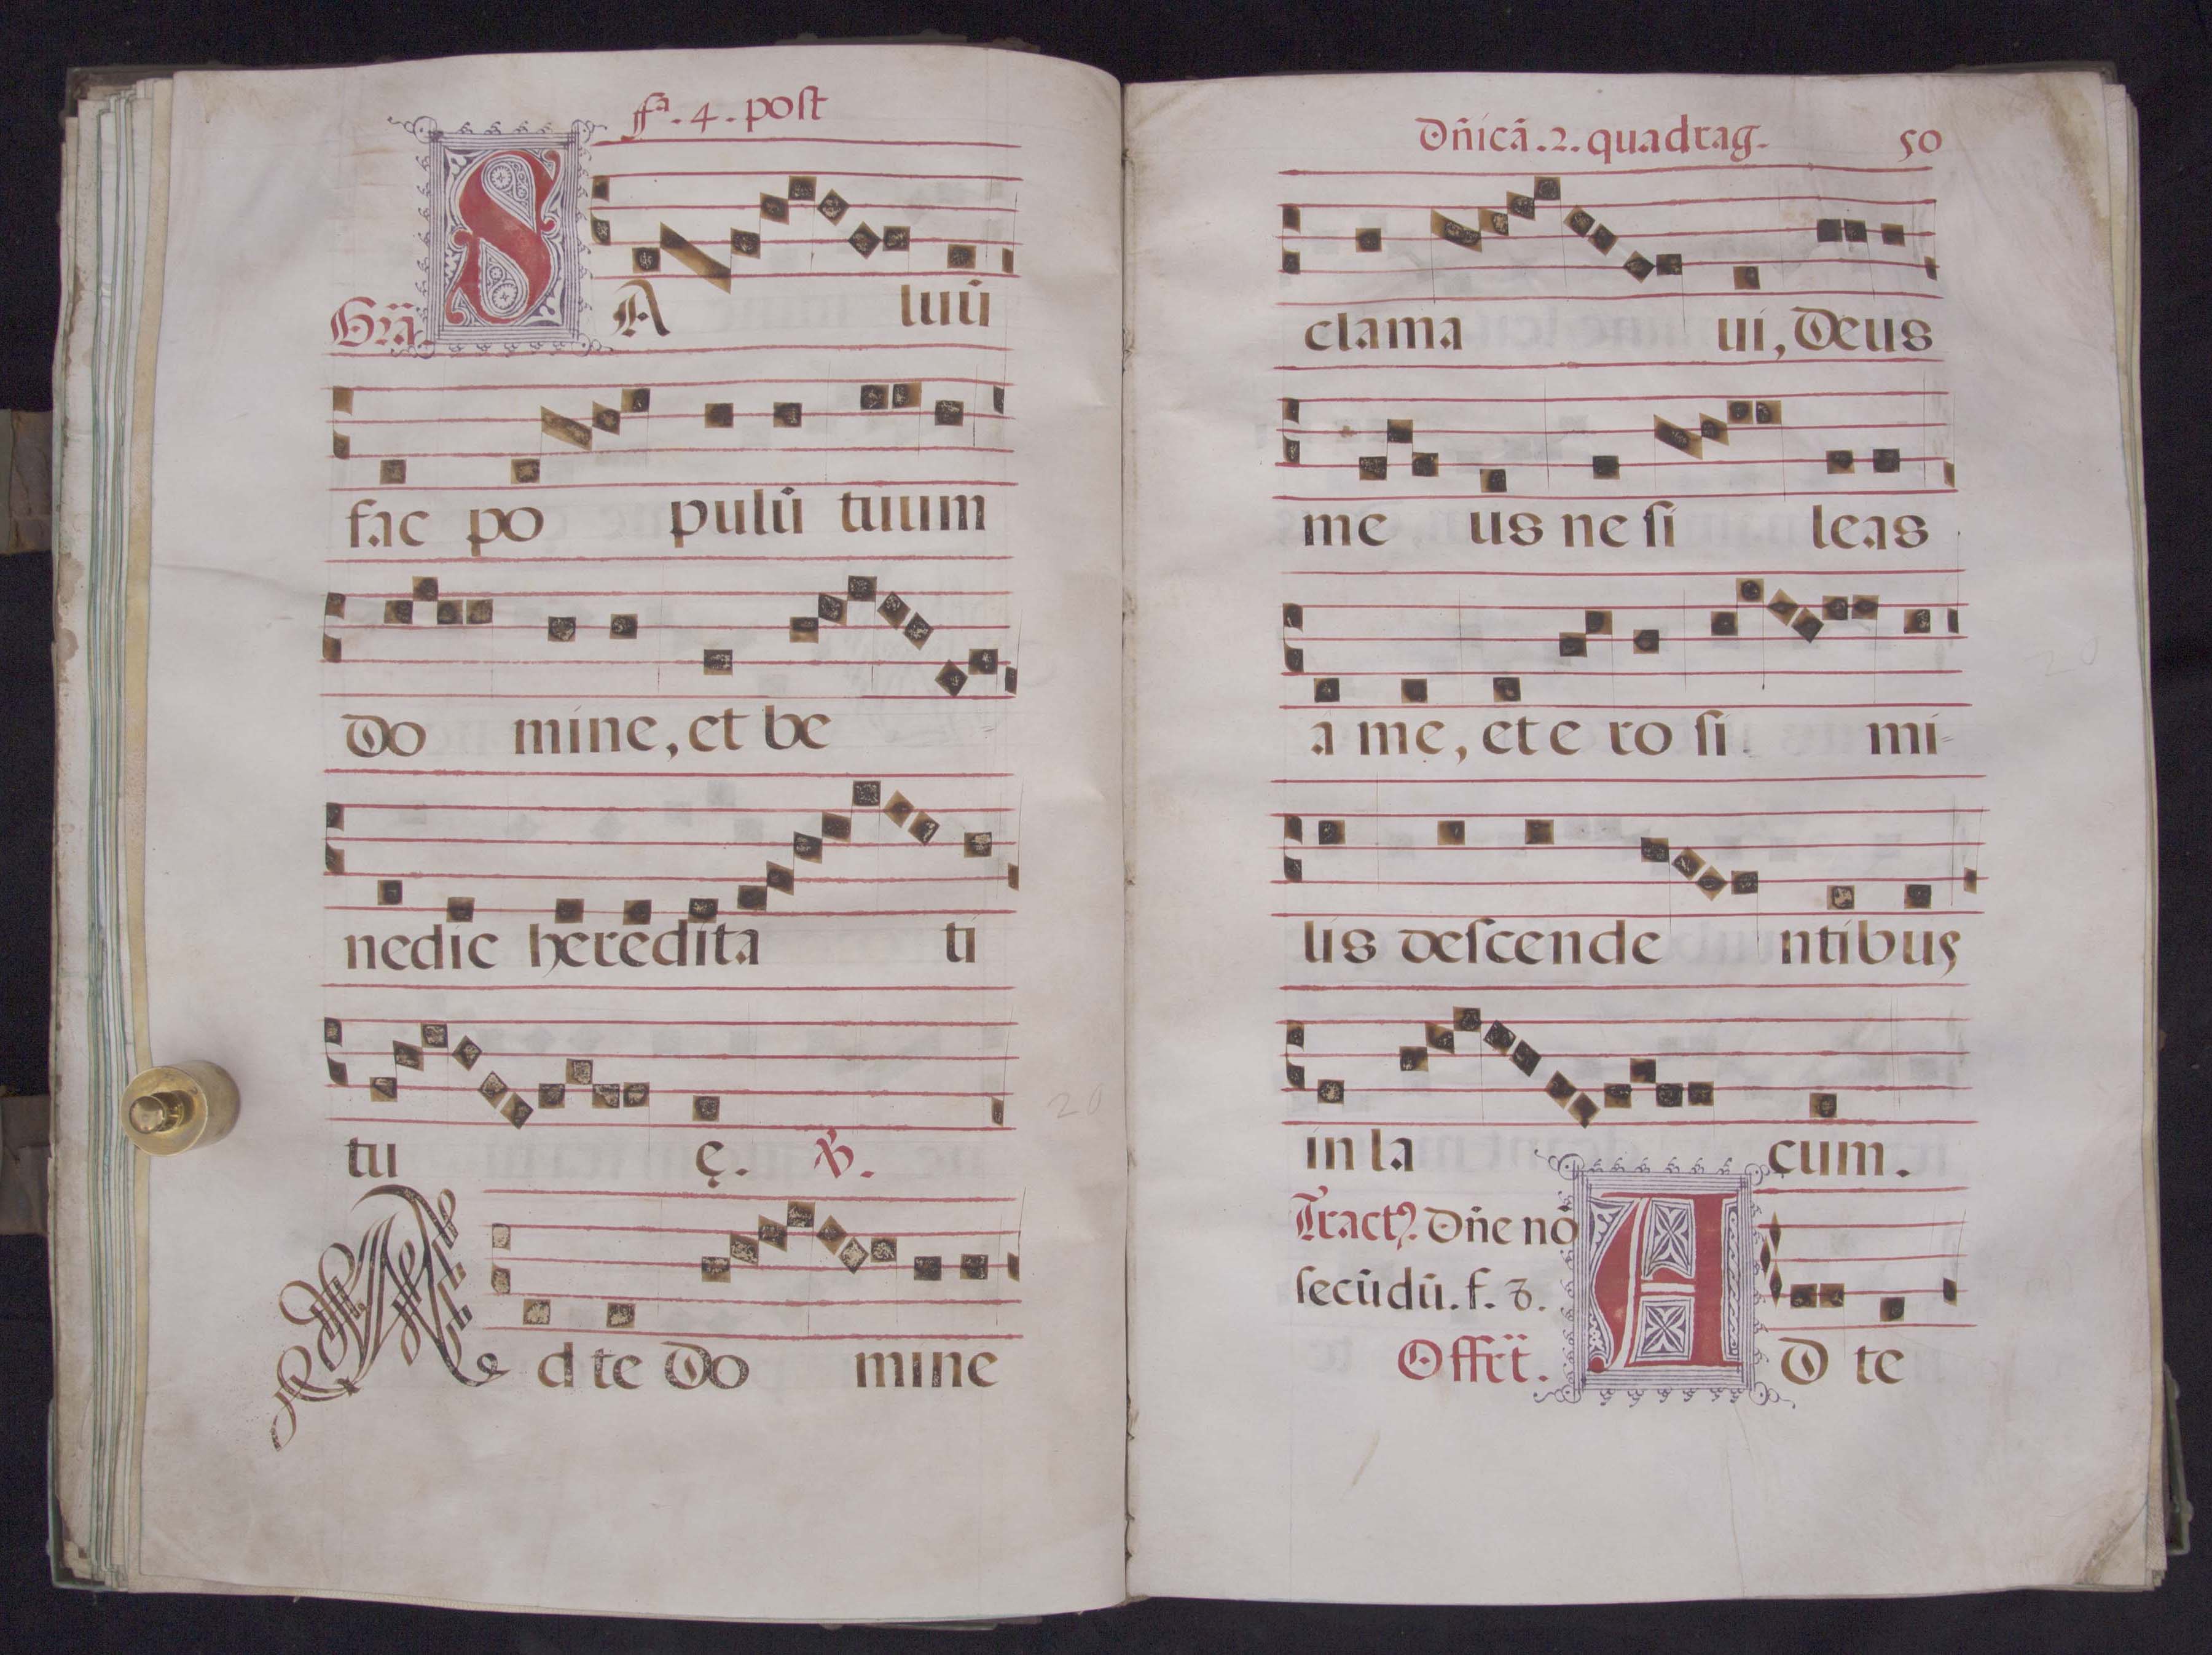 fͣ. 4. poſt
Gr̃a. SA luū
fac po pulū tuum
do mine, et be
nedic heredita ti
tu ę. ℣.
Ad te do mine
Dñicã. 2. quadrag. 50
clama ui, Deus
me us ne ſi leas
á me, et e ro ſi mi-
lis deſcende ntibus
in la cum.
Tract9. Dñe nō
ſecūdū. f. 3.
Offr̃t. AD te
20
20